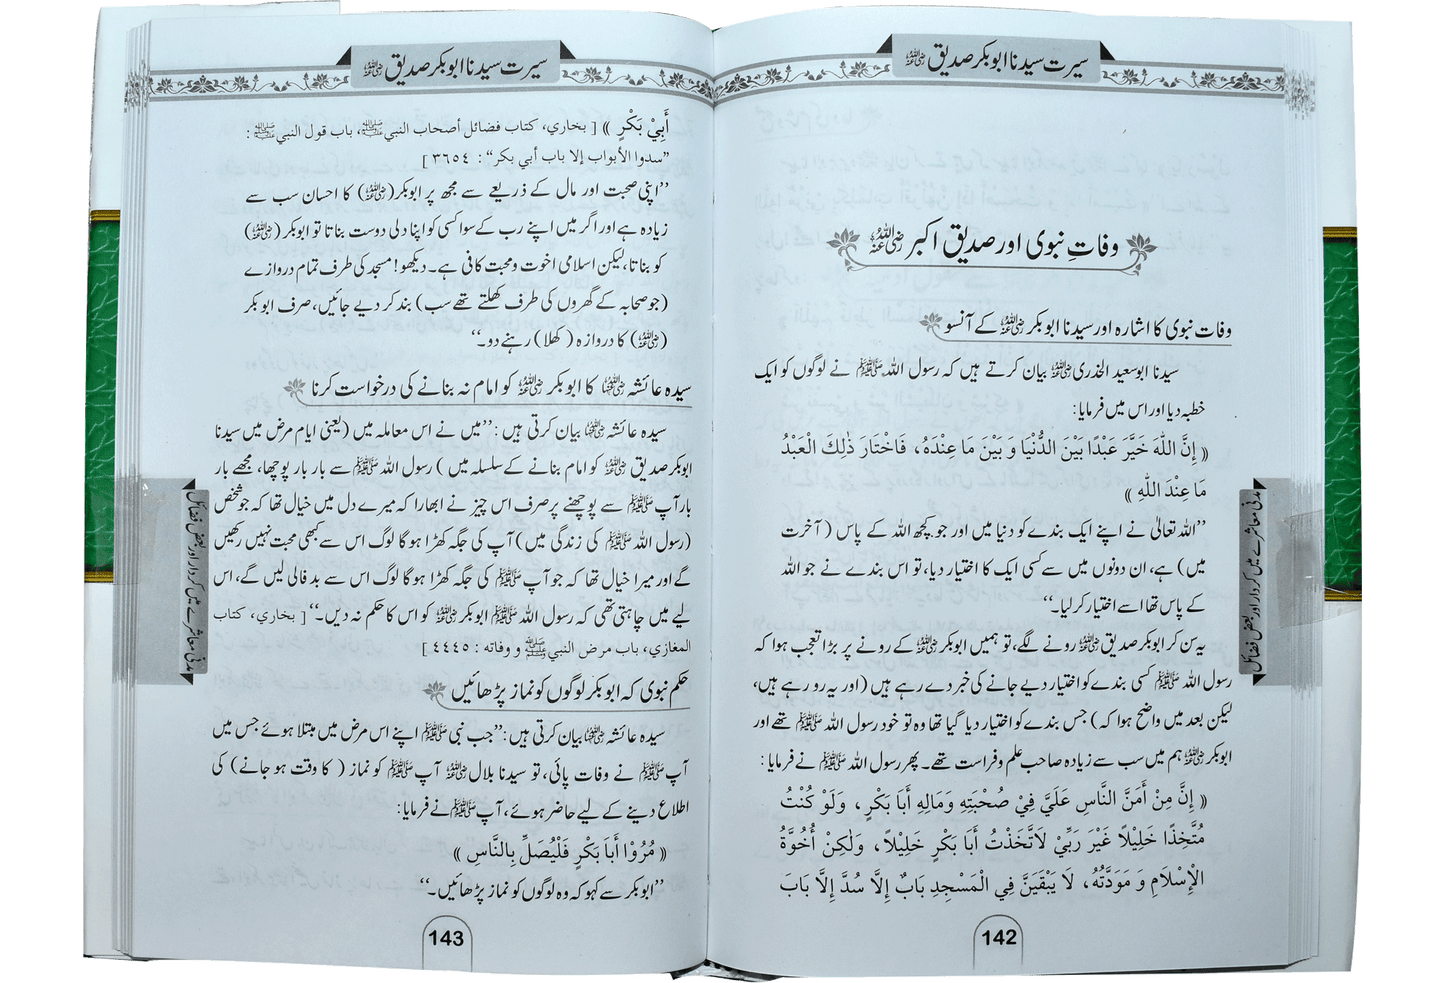 سیرت سیدنا ابوبکر صدیق رضی اللہ عنہ
وفاتِ نبوی اور صدیق اکبر رضی اللہ عنہ
وفات نبوی کا اشارہ اور سیدنا ابوبکر رضی اللہ عنہ کے آنسو
سیدنا ابوسعید الخدری رضی اللہ عنہ بیان کرتے ہیں کہ رسول اللہ ﷺ نے لوگوں کو ایک
خطبہ دیا اور اس میں فرمایا:
﴿ إِنَّ اللّٰهَ خَيَّرَ عَبْدًا بَيْنَ الدُّنْيَا وَ بَيْنَ مَا عِنْدَهُ، فَاخْتَارَ ذٰلِكَ الْعَبْدُ
مَا عِنْدَ اللّٰهِ ﴾
’’اللہ تعالیٰ نے اپنے ایک بندے کو دنیا میں اور جو کچھ اللہ کے پاس (آخرت
میں) ہے، ان دونوں میں سے کسی ایک کا اختیار دیا، تو اس بندے نے جو اللہ
کے پاس تھا اسے اختیار کر لیا۔‘‘
یہ سن کر ابوبکر صدیق رضی اللہ عنہ رونے لگے، تو ہمیں ابوبکر رضی اللہ عنہ کے رونے پر بڑا تعجب ہوا کہ
رسول اللہ ﷺ کسی بندے کو اختیار دیے جانے کی خبر دے رہے ہیں (اور یہ رو رہے ہیں،
لیکن بعد میں واضح ہوا کہ) جس بندے کو اختیار دیا گیا تھا وہ تو خود رسول اللہ ﷺ تھے اور
ابوبکر رضی اللہ عنہ ہم میں سب سے زیادہ صاحب علم و فراست تھے۔ پھر رسول اللہ ﷺ نے فرمایا:
﴿ إِنَّ مِنْ أَمَنَّ النَّاسِ عَلَيَّ فِيْ صُحْبَتِهِ وَمَالِهِ أَبَا بَكْرٍ، وَلَوْ كُنْتُ
مُتَّخِذًا خَلِيْلًا غَيْرَ رَبِّيْ لَاتَّخَذْتُ أَبَا بَكْرٍ خَلِيْلًا، وَلٰكِنْ أُخُوَّةُ
الْإِسْلَامِ وَ مَوَدَّتُهُ، لَا يَبْقَيَنَّ فِي الْمَسْجِدِ بَابٌ إِلَّا سُدَّ إِلَّا بَابَ
142
مدنی معاشرے میں کردار اور بعض فضائل
سیرت سیدنا ابوبکر صدیق رضی اللہ عنہ
أَبِيْ بَكْرٍ ﴾ [ بخاري، كتاب فضائل أصحاب النبي ﷺ، باب قول النبي ﷺ :
”سدوا الأبواب إلا باب أبي بكر“ : ٣٦٥٤ ]
’’اپنی صحبت اور مال کے ذریعے سے مجھ پر ابوبکر (رضی اللہ عنہ) کا احسان سب سے
زیادہ ہے اور اگر میں اپنے رب کے سوا کسی کو اپنا دلی دوست بناتا تو ابوبکر (رضی اللہ عنہ)
کو بناتا، لیکن اسلامی اخوت و محبت کافی ہے۔ دیکھو! مسجد کی طرف تمام دروازے
(جو صحابہ کے گھروں کی طرف کھلتے تھے سب) بند کر دیے جائیں، صرف ابوبکر
(رضی اللہ عنہ) کا دروازہ (کھلا) رہنے دو۔‘‘
سیدہ عائشہ رضی اللہ عنہا کا ابوبکر رضی اللہ عنہ کو امام نہ بنانے کی درخواست کرنا
سیدہ عائشہ رضی اللہ عنہا بیان کرتی ہیں: ’’میں نے اس معاملہ میں (یعنی ایام مرض میں سیدنا
ابوبکر صدیق رضی اللہ عنہ کو امام بنانے کے سلسلہ میں) رسول اللہ ﷺ سے بار بار پوچھا، مجھے بار
بار آپ ﷺ سے پوچھنے پر صرف اس چیز نے ابھارا کہ میرے دل میں خیال تھا کہ جو شخص
(رسول اللہ ﷺ کی زندگی میں) آپ کی جگہ کھڑا ہوگا لوگ اس سے کبھی محبت نہیں رکھیں
گے اور میرا خیال تھا کہ جو آپ ﷺ کی جگہ کھڑا ہوگا لوگ اس سے بدفالی لیں گے، اس
لیے میں چاہتی تھی کہ رسول اللہ ﷺ ابوبکر رضی اللہ عنہ کو اس کا حکم نہ دیں۔‘‘ [ بخاري، كتاب
المغازي، باب مرض النبي ﷺ و وفاته : ٤٤٤٥ ]
حکم نبوی کہ ابوبکر لوگوں کو نماز پڑھائیں
سیدہ عائشہ رضی اللہ عنہا بیان کرتی ہیں: ’’جب نبی ﷺ اپنے اس مرض میں مبتلا ہوئے جس میں
آپ ﷺ نے وفات پائی، تو سیدنا بلال رضی اللہ عنہ آپ ﷺ کو نماز (کا وقت ہو جانے) کی
اطلاع دینے کے لیے حاضر ہوئے، آپ ﷺ نے فرمایا:
﴿ مُرُوْا أَبَا بَكْرٍ فَلْيُصَلِّ بِالنَّاسِ ﴾
’’ابوبکر سے کہو کہ وہ لوگوں کو نماز پڑھائیں۔‘‘
143
مدنی معاشرے میں کردار اور بعض فضائل